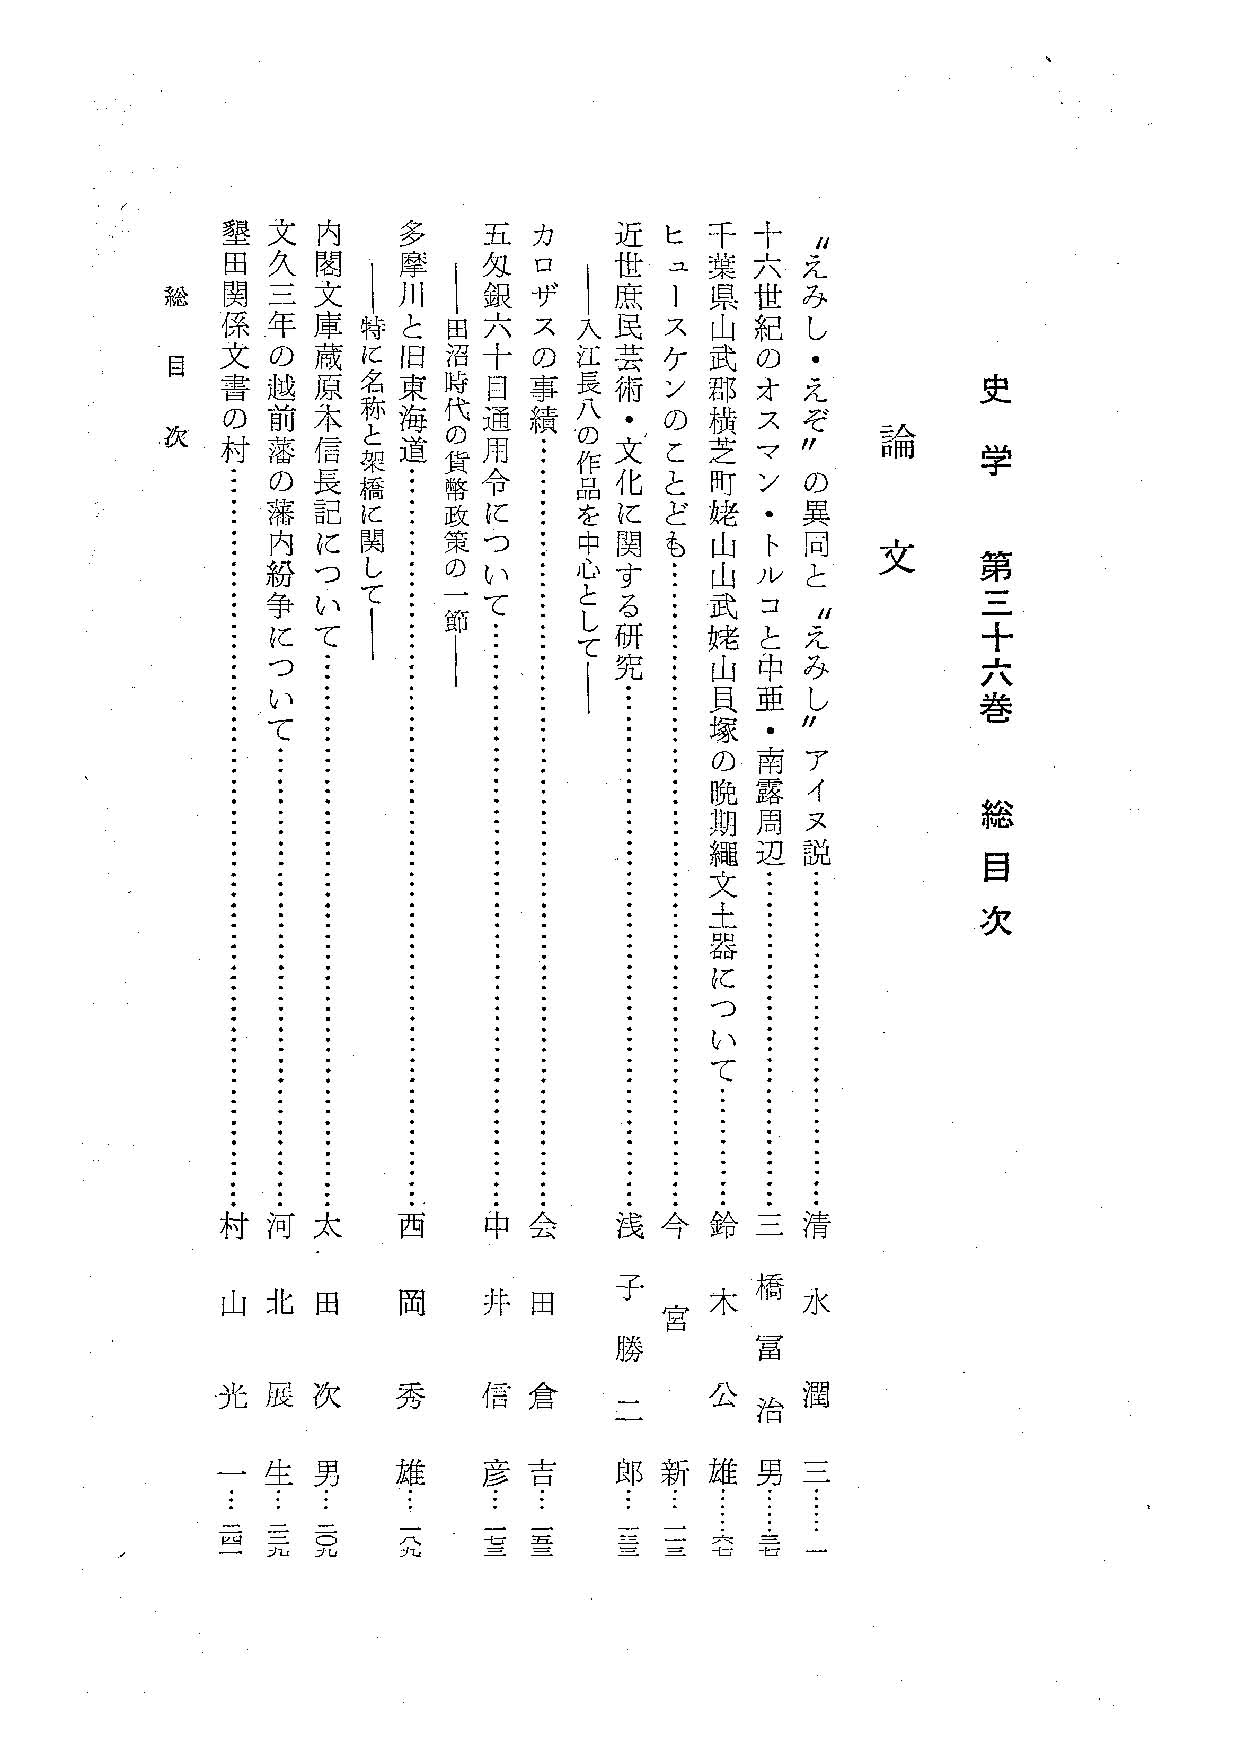 史学 第三十六巻 総目次
論文
〝えみし・えぞ〟の異同と〝えみし〟アイヌ説……清水潤三……一
十六世紀のオスマン・トルコと中亜・南露周辺……三橋冨治男……三七
千葉県山武郡横芝町姥山山武姥山貝塚の晩期縄文土器について……鈴木公雄……六七
ヒュースケンのことども……今宮新…一一三
近世庶民芸術・文化に関する研究……浅子勝二郎…
――入江長八の作品を中心として――
カロザスの事績……会田倉吉…一五三
五匁銀六十目通用令について……中井信彦…一七三
――田沼時代の貨幣政策の一節――
多摩川と旧東海道……西岡秀雄…一八九
――特に名称と架橋に関して――
内閣文庫蔵原本信長記について……太田次男…二〇九
文久三年の越前藩の藩内紛争について……河北展生…二三九
墾田関係文書の村……村山光一…二四一
総目次